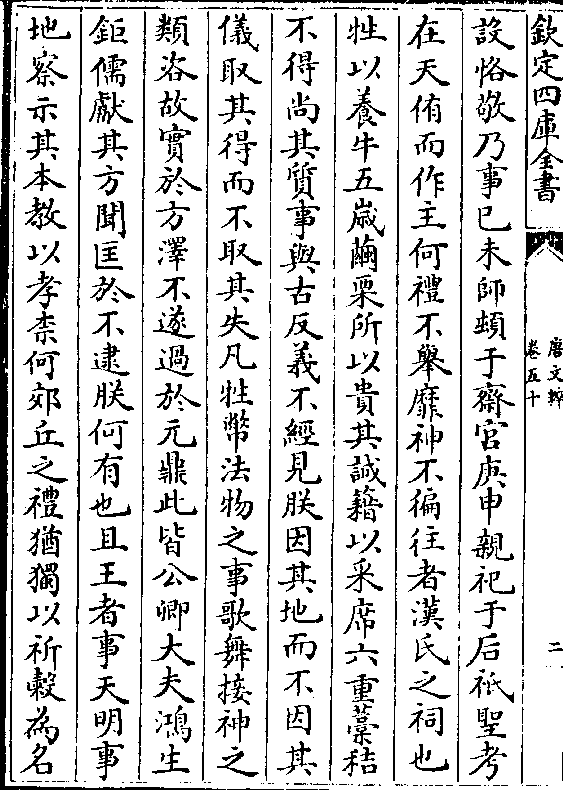 欽定四庫全書
唐文粹
卷五十
二
設恪敬乃事已未師頓于齋宫庚申親祀于后祇聖考
在天侑而作主何禮不舉靡神不徧往者漢氏之祠也
牲以養牛五嵗繭栗所以貴其誠籍以采席六重藁秸
不得尚其質事與古反義不經見朕因其地而不因其
儀取其得而不取其失凡牲幣法物之事歌舞接神之
類洛故實於方澤不遂過於元鼎此皆公卿大夫鴻生
鉅儒獻其方聞匡於不逮朕何有也且王者事天明事
地察示其本教以孝柰何郊丘之禮猶獨以祈穀為名